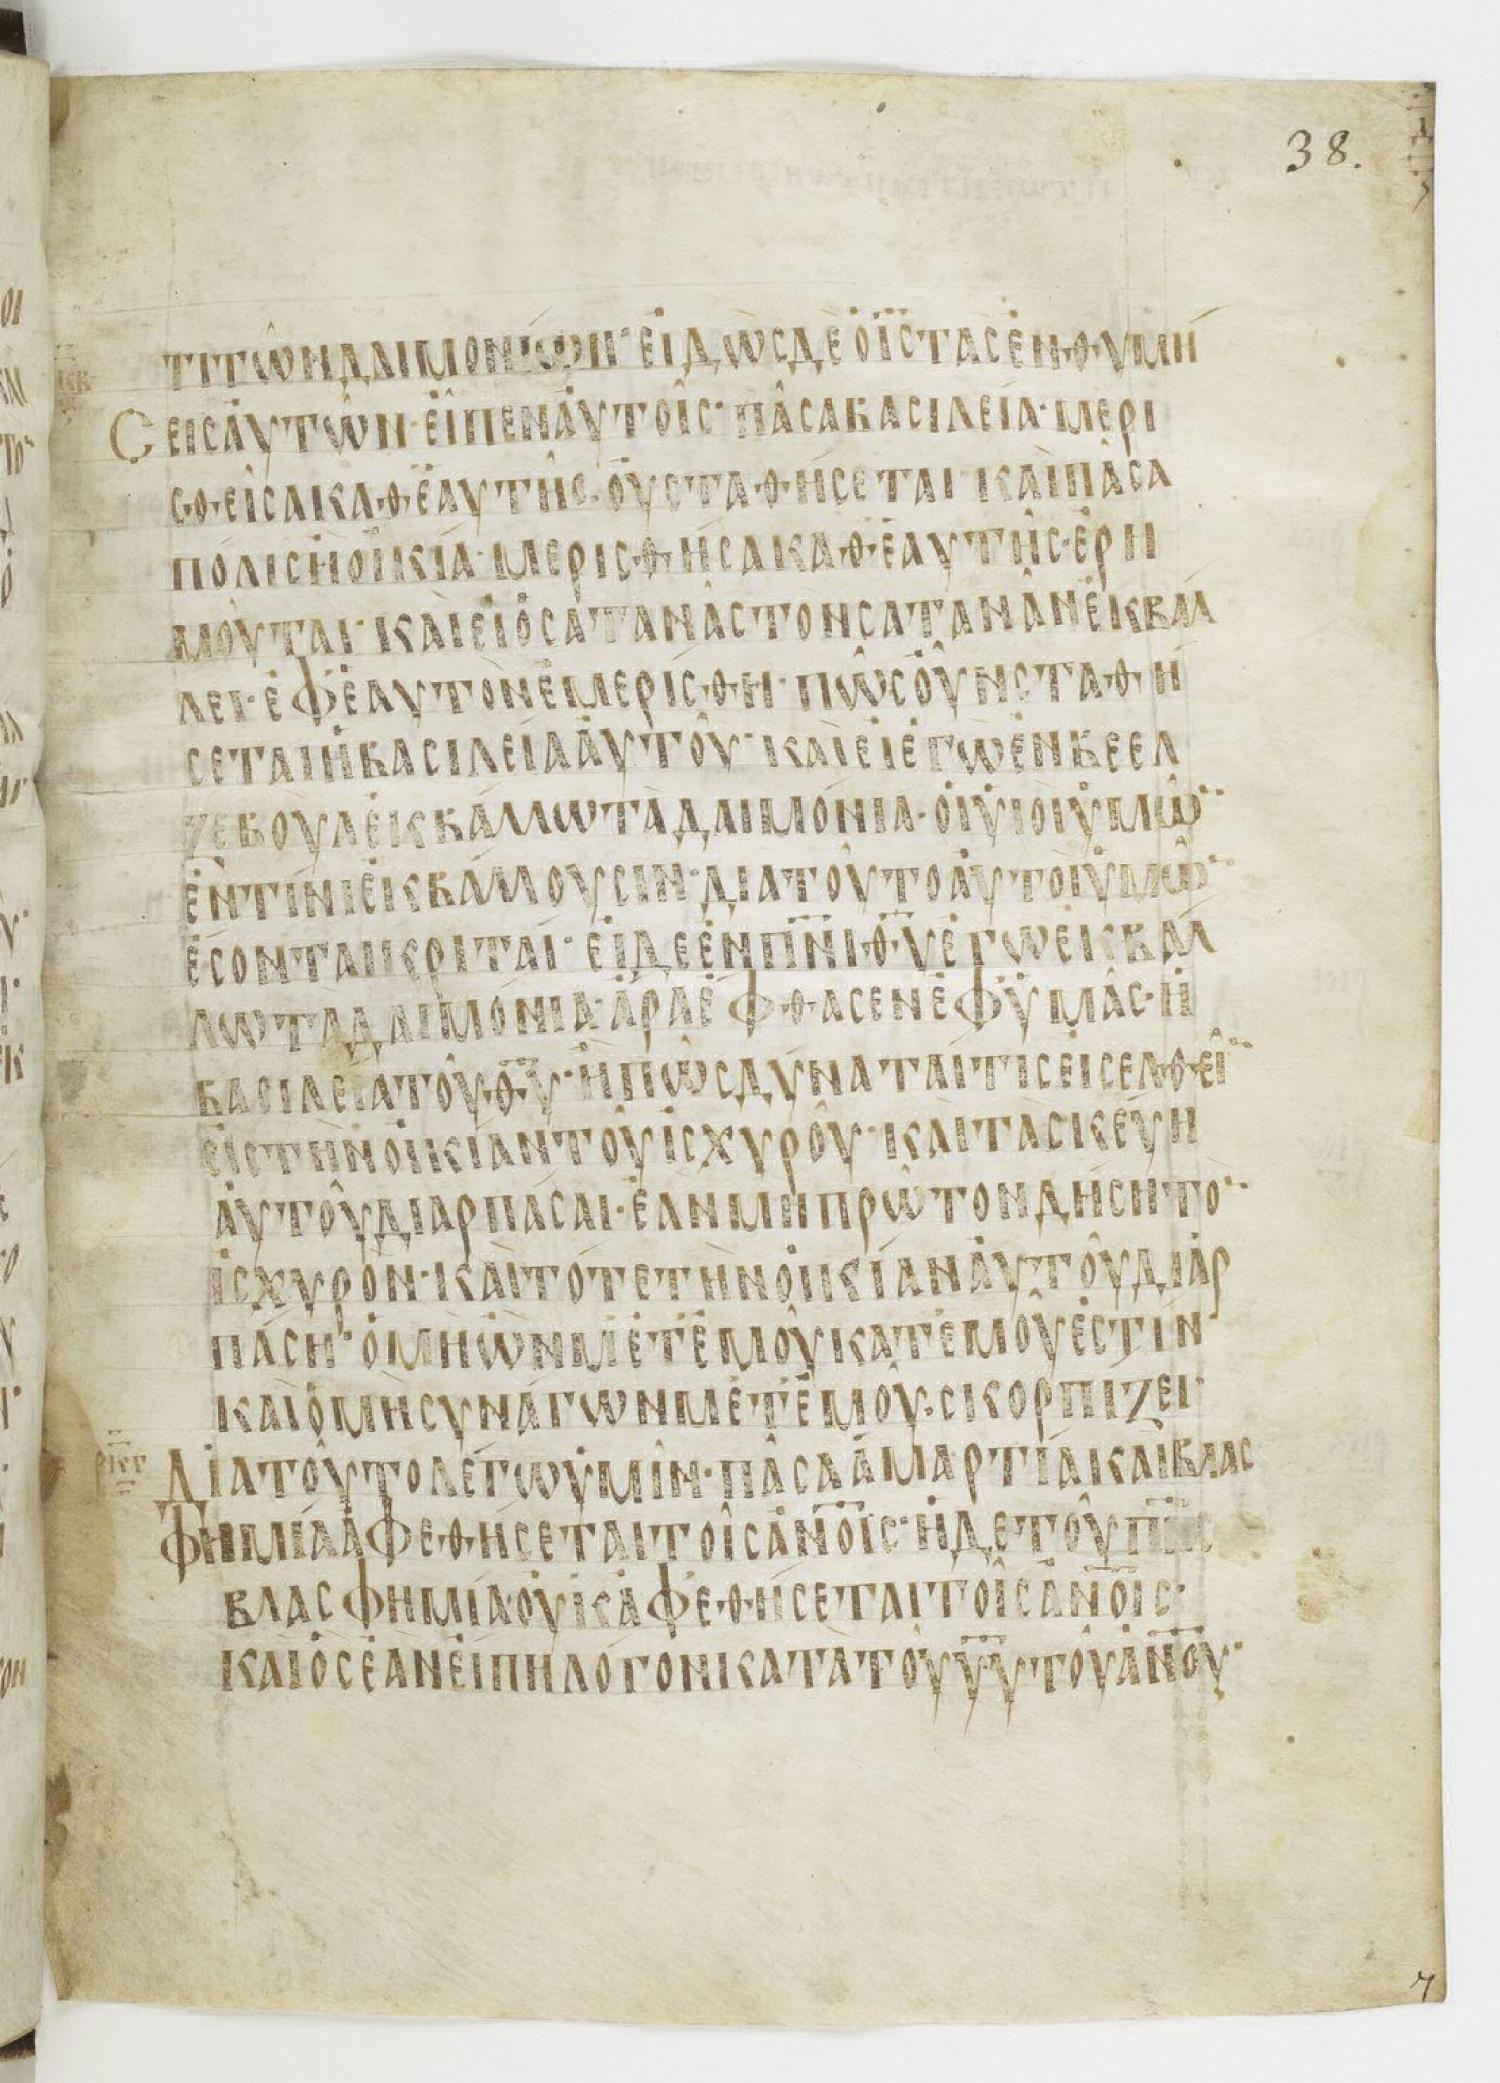 38.
τι τῶν δαιμονίων· εἰδὼς δὲ ὁ ι̅ς̅ τὰς ἐνθυμή
σεις αὐτῶν· εἶπεν αὐτοῖς· πᾶσα βασιλεία· μερι
σθεῖσα καθ ἑαυτῆς· οὐ σταθήσεται· καὶ πᾶσα
πόλις ἢ οἰκία· μερισθήσα καθ ἑαυτῆς· ἐρη
μοῦται· καὶ εἰ ὁ σατανᾶς τὸν σατανᾶν ἐκβάλ
λει· ἐφ ἑαυτὸν ἐμερίσθη· πῶς οὖν σταθή
σεται ἡ βασιλεία αὐτοῦ· καὶ εἰ ἐγὼ ἐν βεελ
ζεβοὺλ ἐκβάλλω τὰ δαιμόνια· οἱ υἱοὶ ὑμῶ¨
ἐν τίνι ἐκβάλλουσιν· διατοῦτο αὐτοὶ ὑμῶ¨
ἔσονται κριταί· εἰ δὲ ἐν π̅ν̅ι̅ θ̅υ̅ ἐγὼ ἐκβάλ
λω τὰ δαιμόνια· ἄρα ἔφθασεν ἐφ ὑμᾶς· ἡ
βασιλεία τοῦ θ̅υ̅· ἢ πῶς δύναται τις εἰσελθεῖ¨
εἰς τὴν οἰκίαν τοῦ ἰσχυροῦ· καὶ τὰ σκεύη
αὐτοῦ διαρπάσαι· ἐὰν μὴ πρῶτον δήση το¨
ἰσχυρόν· καὶ τότε τὴν οἰκίαν αὐτοῦ διαρ
πάση· ὁ μὴ ὢν μετ ἐμοῦ κατ ἐμοῦ ἐστίν
καὶ ὁ μὴ συνάγων μετ ἐμοῦ· σκορπίζει·
Διατοῦτο λέγω ὑμῖν· πᾶσα ἁμαρτία καὶ βλασ
φημία ἀφεθήσεται τοῖς α̅ν̅ο̅ι̅ς̅· ἡ δὲ τοῦ π̅ν̅ς̅
βλασφημία οὐκ ἀφεθήσεται τοῖς α̅ν̅ο̅ι̅ς̅·
καὶ ὃς ἐὰν εἴπη λόγον κατὰ τοῦ υ̅υ̅ τοῦ α̅ν̅ο̅υ̅·